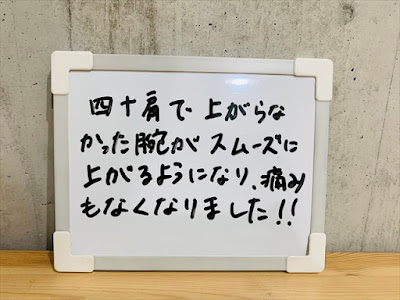 四十肩で上がらな
かった腕がスムーズに
上がるようになり、痛み
もなくなりました!!